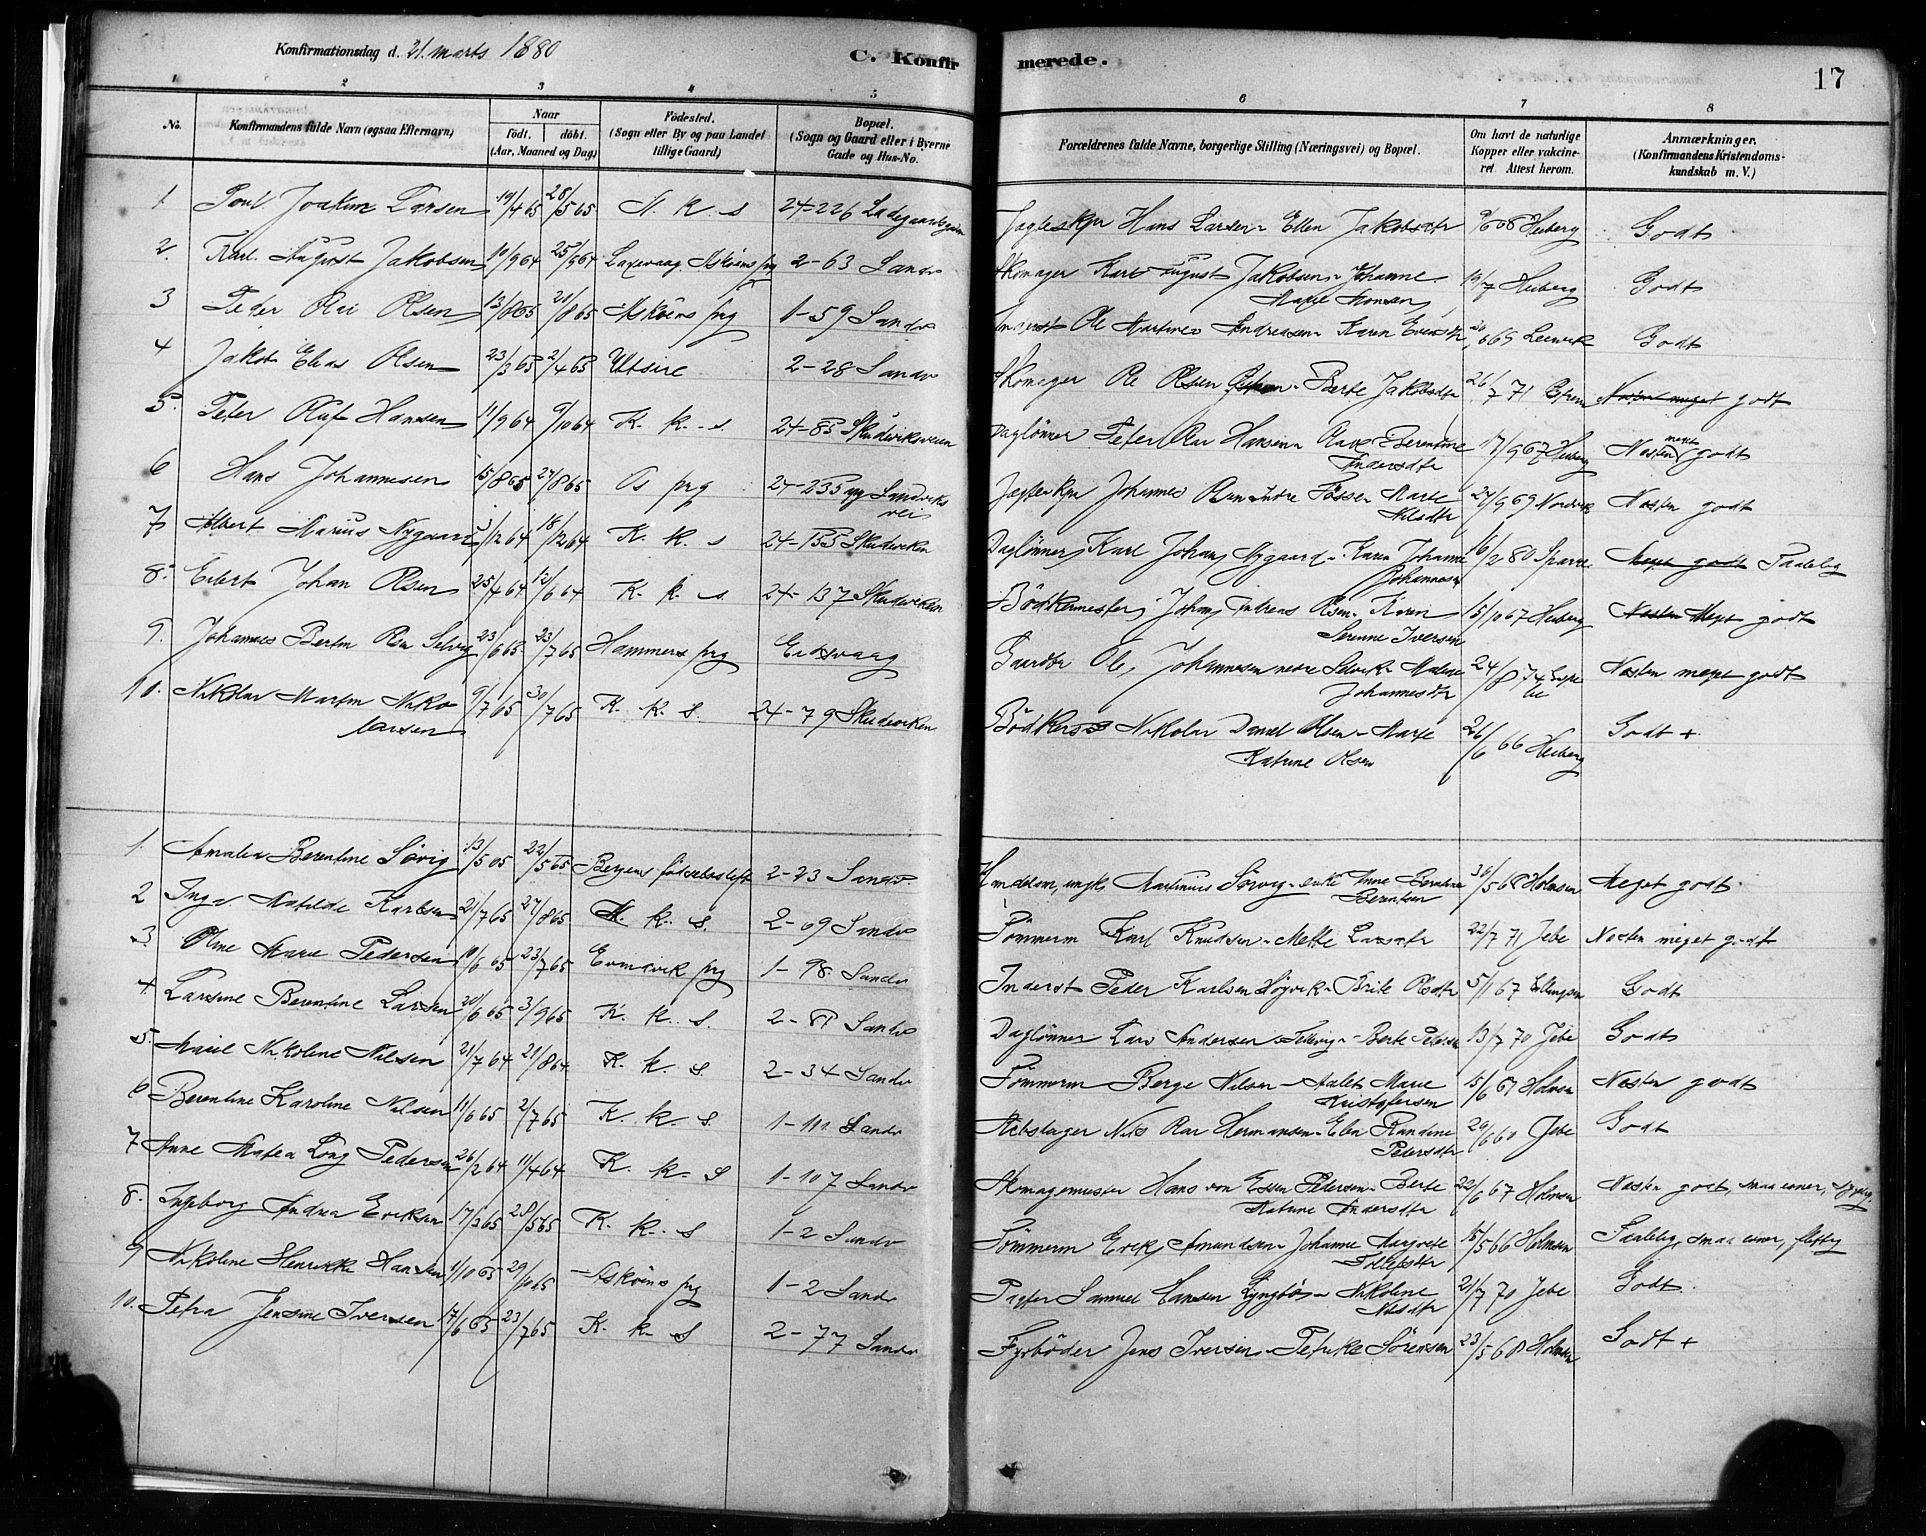 Konfirmationsdag d. 21. marts 1880
C. Konfirmerede.
17
1 2 3 4 5 6 7 8
No.
Konfirmandens fulde Navn (ogsaa Efternavn)
Naar
født. døbt.
(Aar, Maaned og Dag)
Fødested.
(Sogn eller By og paa Landet
tillige Gaard)
Bopæl.
(Sogn og Gaard eller i Byerne
Gade og Hus-No.
Forældrenes fulde Navne, borgerlige Stilling (Næringsvei) og Bopæl.
Om havt de naturlige
Kopper eller vakcine-
ret Attest herom.
Anmærkninger.
(Konfirmandens Kristendoms-
kundskab m. V.)
1 Poul Joakim Larsen 19/4 65 28/5 65 N. k. s 24-226 Ladegaardsgaden Jagteskpr Hans Larsen - Ellen Jakobsdtr Heiberg Godt
2. Karl August Jakobsen 10/9 64 25/9 64 Laxevaag Askøens prg 2-63 Sandv Skomager Karl August Jakobsen - Johanne
Marie Monsen 19/7 Heiberg Godt
3 Peder Olai Olsen 13/8 65 20/8 65 Askøens prg 1-59 Sandv Inderst Ole Martines Andreasen - Karen Evensdtr Leervik Godt
4 Jakob Elias Olsen 23/3 65 2/4 65 Utsire 2-28 Sandv Skomager Ole Olsen - Berte Jakobsdtr 26/7 71 Næsten meget godt
5. Peter Oluf Hansen 11/9 64 9/10 64 K. k. s. 24-85 Skudeviksveien Daglønner Peter Olai Hansen - Olave Berentine
Andersdtr 17/9 67 Heiberg Næsten meget godt
6 Hans Johannesen 15/8 65 27/8 65 Os prg 24-235 Sandviks
vei Jagteskpr Johannes Olsen Indre Søfse - Marte
Nilsdtr 24/9 69 Nordvik Næsten godt
7 Albert Marius Nygaard 3/12 64 18/12 64 K. k. s 24-155 Skudeviken Daglønner Karl Johan Nygaard - Karen Johanne
Johannesen 16/2 80 Sparre Meget godt Taalelig
8. Eilert Johan Olsen 25/4 64 12/6 64 K. k. s 24-137 Skudeviken Bødkermester Johan Andreas Olsen - Karen
Serenne Iversen 15/10 67 Heiberg Næsten Meget godt
9. Johannes Bertin Olsen Selvig 23/6 65 23/7 65 Hammers prg Eidsvaag Gaardbr Ole Johannesen nedre Selvik - Malene
Johannesdtr 24/8 74 Næsten meget godt
10. Nikolai Martin Niko
laisen 9/7 65 30/7 65 K. k. S. 24-79 Skudeviken Bødkers Nikolai Daniel Olsen - Marie
Katrine Olsen 26/6 66 Heiberg Godt +
1 Amalia Berentine Sørvig 13/5 65 22/5 65 Bergens fødselsstift 2-23 Sandv. Martinus Sørvig - enke Anne Berentine
Berentsen 30/5 68 Holmsen Meget godt
2 Inga Matilde Karlsen 21/7 65 27/8 65 N. k. s. 2-69 Sandv Tømmerm Karl Knudsen - Mette Larsdtr 22/7 71 Jebe Næsten meget godt
3. Oline Marie Pedersen 10/6 65 23/7 65 Evindvik prg 1-98 Sandv Inderst Peder Karlsen Høyvik - Brite Olsdtr 5/11 67 Ellingsen Godt
4 Larsine Berentine Larsen 20/6 65 3/9 65 K. k. S. 2-81 Sandv Daglønner Lars Andersen - Berte Pedersen 13/7 70 Jebe Godt
5. Marie Nikoline Nilsen 21/7 64 21/8 64 K. k. S. 2-34 Sandv Tømmerm Berge Nilsen - Aalet Marie
Kristofersen 15/6 67 Holmsen Næsten godt
6 Berentine Karoline Nilsen 11/6 65 2/7 65 K. k. S. 1-111 Sandv Rebslager Nils Olai Hermansen - Elen Randine
Pedersdtr Jebe Godt
7 Anne Matea Long Pedersen 26/2 64 11/4 64 K. k. S 1-107 Sandv Skomagermester Hans von Essen Pedersen - Berte
Katrine Andersdtr 22/6 67 Holmsen Næsten godt, smaa evner,
8. Ingeborg Andrea Eriksen 17/3 65 28/5 65 K. k. S 1-2 Sandv Tømmerm Erik Amundsen - Johanne Margrete
Tollefsdtr 15/5 66 Holmsen Taalelig, smaa evner, flittig
9 Nikoline Henrikke Hansen 11/10 65 29/10 65 Askøens prg 1-2 Sandv Pagter Samuel Hansen Lyngbø - Nikoline
Nilsdtr 21/7 70 Jebe Godt
10. Petra Jensine Iversen 17/6 65 23/7 65 K. k. S 2-77 Sandv Fyrbøder Jens Iversen - Petrike Sørensen 23/5 68 Holmsen Godt +